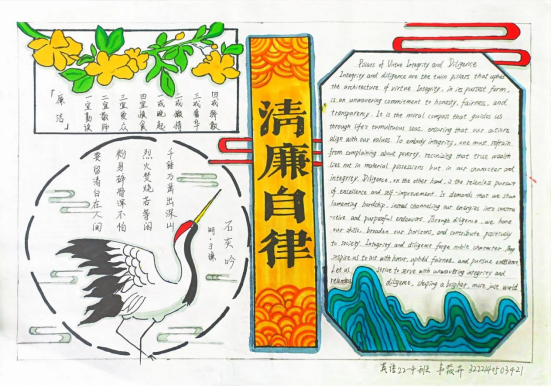 「廉洁」
一宜勤俭
二宜敬师
三宜爱众
四宜慎食
一戒晚起
二戒懒惰
三戒奢华
四戒骄傲
清廉自律
石灰吟
明·于谦
千锤万凿出深山
烈火焚烧若等闲
粉身碎骨浑不怕
要留清白在人间
Pillars of Virtue Integrity and Diligence
Integrity and diligence are the twin pillars that uphold
the architecture of virtue. Integrity, in its purest form,
is an unwavering commitment to honesty, fairness, and
transparency. It is the moral compass that guides us
through life's tumultuous seas, ensuring that our actions
align with our values. To embody integrity, one must refrain
from complaining about poverty, recognizing that true wealth
lies not in material possessions but in our character and
integrity. Diligence, on the other hand, is the relentless pursuit
of excellence and self-improvement. It demands that we shun
lamenting hardship, instead channeling our energies into constru
-ctive and purposeful endeavors. Through diligence, we hone
our skills, broaden our horizons, and contribute positively
to society. Integrity and diligence forge noble character. They
inspire us to act with honor, uphold fairness, and pursue excellence
Let us strive to serve with unwavering integrity and
relentless diligence, shaping a brighter, more just world.
英语22-4班 3222440503421